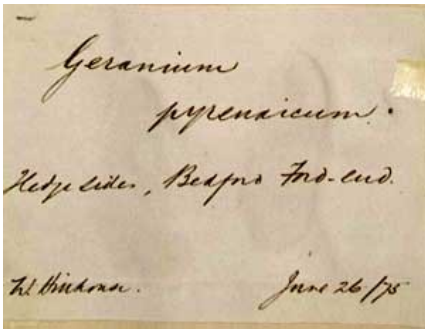 Geranium
pyrenaicum.
Hedge sides, Bedford Ford-end.
W Hillhouse. June 26/75